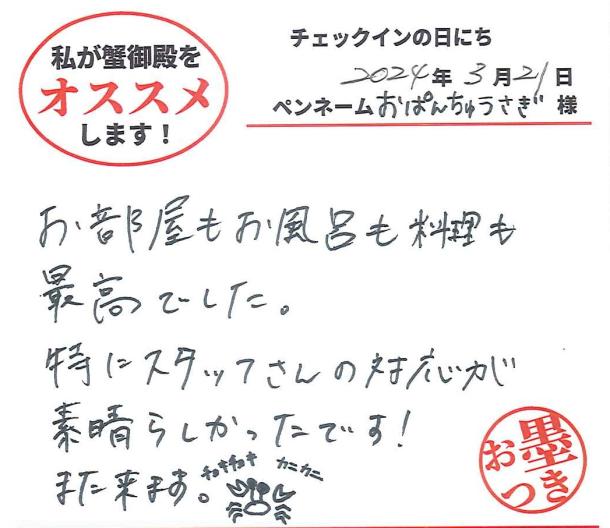 私が蟹御殿を
オススメ
します！
チェックインの日にち
2024年3月21日
ペンネームおぱんちゅうさぎ様
お部屋もお風呂も料理も
最高でした。
特にスタッフさんの対応が
素晴らしかったです！
また来ます。
チョキチョキ カニカニ
お墨つき